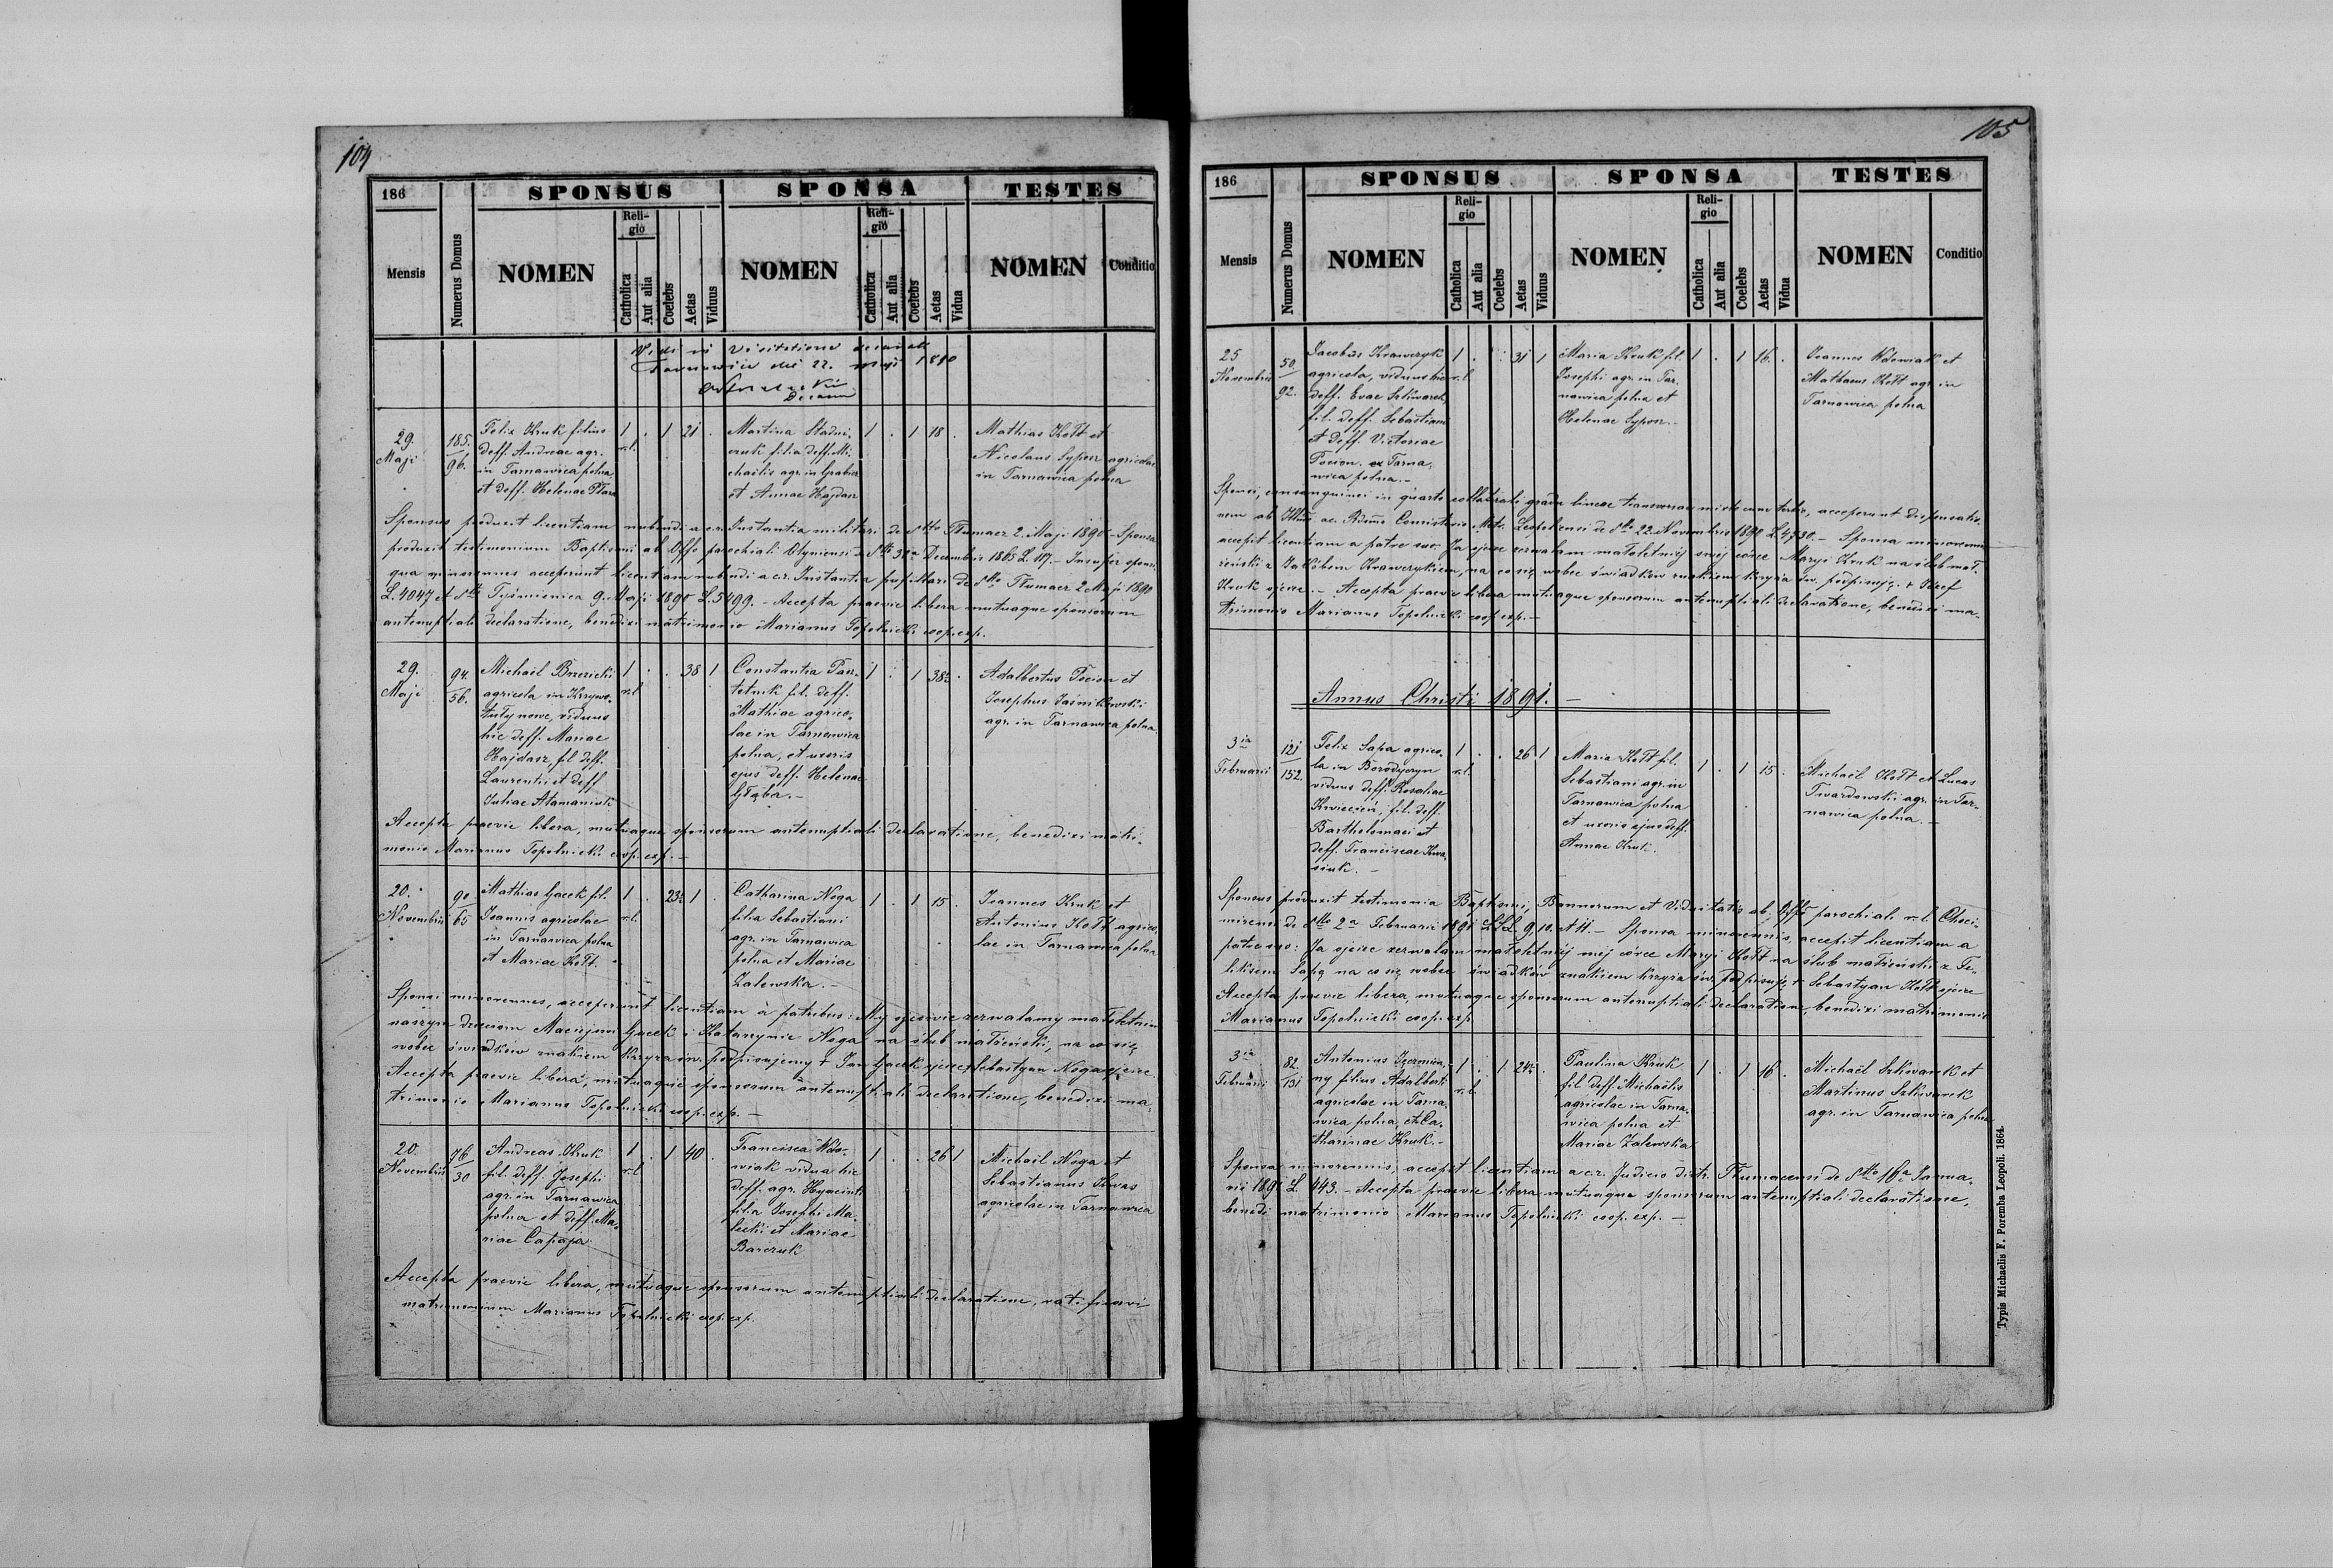 104
186
SPONSUS
SPONSA
TESTES
Mensis
Numerus Domus
NOMEN
Religio
Catholica
Aut alia
Coelebs
Aetas
Viduus
NOMEN
Religio
Catholica
Aut alia
Coelebs
Aetas
Vidua
NOMEN
Conditio
Vidi in Visitatione decanali
Tarnowicae die 22. Maji 1890
Decanus
29.
Maji
185.
96.
Felix Kruk filius
deff. Andreae agr.
in Tarnawica polna
et deff. Helenae
1 . 1 21 .
r.l.
Martina
filia deff. Mi-
chaelis agr. in
et Annae Hajdasz
1 . 1 18 .
Mathias Kott et
Nicolaus Sypen agricolae
in Tarnawica polna
Sponsus produxit licentiam nubendi a c.r. Instantia militari de dtto Tłumacz 2. Maji 1890 - Sponsa
produxit testimonium Baptismi ab Offo parochiali Otyniensi de dtto Decembris 1863 L. 117. - Insuper sponsi
qua minorennes acceperunt licentiam nubendi a c.r. Instantia pupillari de dtto Tłumacz 2 Maji 1890
L. 4047 et dtto Tyśmienica 9. Maji 1890 L. 5499. - Accepta praevie libera mutuaque sponsorum
antenuptiali declaratione, benedixi matrimonio Marianus Topolnicki coop. exp.
29.
Maji
94.
56.
Michaël Brzezicki
agricola in Krzywo-
tuły nowe, viduus
hic deff. Mariae
Hajdasz, fil. deff.
Laurentii et deff.
Juliae Atamaniuk
1 . . 38 1
r.l.
Constantia Pas-
ternik fil. deff.
Mathiae agrico-
lae in Tarnawica
polna, et uxoris
ejus deff. Helenae
Głąba. -
1 . 1 38½ .
Adalbertus Tocion et
Josephus Jaśnikowski
agr. in Tarnawica polna.
Accepta praevie libera, mutuaque sponsorum antenuptiali declaratione, benedixi matri-
monio Marianus Topolnicki coop. exp. -
20.
Novembris
90
65
Mathias Gacek fil.
Joannis agricolae
in Tarnawica polna
et Mariae Kott.
1 . 23½ 1 .
r.l.
Catharina Noga
filia Sebastiani
agr. in Tarnawica
polna et Mariae
Zalewska. -
1 . 1 15 .
Joannes Kruk et
Antonius Kott agrico-
lae in Tarnawica polna
Sponsi minorennes, acceperunt licentiam a patribus: My ojcowie zezwalamy małoletnim
naszym dzieciom Maciejowi Gacek i Katarzynie Noga na ślub małżeński, na co się
wobec świadków znakiem krzyża św. podpisujemy + Jan Gacek ojciec + Sebastyan Noga ojciec.
Accepta praevie libera, mutuaque sponsorum antenuptiali declaratione, benedixi ma-
trimonio Marianus Topolnicki coop. exp. -
20.
Novembris
76
30
Andreas Kruk
fil. deff. Josephi
agr. in Tarnawica
polna et deff. Ma-
riae Capaja
1 . 1 40 .
r.l.
Francisca Wdo-
wiak vidua hic
deff. agr. Hyacinti
filia Josephi Ma-
lecki et Mariae
Barczuk
1 . . 26 1
Michaël Noga et
Sebastianus Kwas
agricolae in Tarnawica
Accepta praevie libera, mutuaque sponsorum antenuptiali declaratione, ratificavi
matrimonium Marianus Topolnicki coop. exp.
105
186
SPONSUS
SPONSA
TESTES
Mensis
Numerus Domus
NOMEN
Religio
Catholica
Aut alia
Coelebs
Aetas
Viduus
NOMEN
Religio
Catholica
Aut alia
Coelebs
Aetas
Vidua
NOMEN
Conditio
25
Novembris
50.
92.
Jacobus Krawczyk
agricola, viduus hic
deff. Evae Szliwarek,
fil. deff. Sebastiani
et deff. Victoriae
Tocion. ex Tarna-
wica polna. -
1 . . 31 1
r.l.
Maria Kruk fil.
Josephi agr. in Tar-
nawica polna et
Helenae Sypen. -
1 . 1 16 .
Joannes Wdowiak et
Mathaeus Kott agr. in
Tarnawica polna
Sponsi, consanguinei in quarto collaterali gradu lineae transversae mixto cum tertio, acceperunt dispensatio-
nem ab Illmo ac Rdmo Consistorio Metr. Leopoliensi de dto 22. Novembris 1890 L. 4730. - Sponsa minorennis
accepit licentiam a patre suo: Ja ojciec zezwalam małoletniéj swéj córce Maryi Kruk na ślub mał-
żeński z Jakóbem Krawczykiem, na co się wobec świadków znakiem krzyża św. podpisuję. + Józef
Kruk ojciec. - Accepta praevie libera mutuaque sponsorum antenuptiali declaratione, benedixi ma-
trimonio Marianus Topolnicki coop. exp. -
Annus Christi 1891. -
3ia
Februarii
121
152.
Felix Sapa agrico-
la in Borodyczyn
viduus deff. Rosaliae
Kwiecień, fil. deff.
Bartholomaei et
deff. Franciscae Kwa-
siuk. -
1 . . 26 1
r.l.
Maria Kott fil.
Sebastiani agr. in
Tarnawica polna
et uxoris ejus deff.
Annae Kruk.
1 . 1 15 .
Michaël Kott et Lucas
Twardowski agr. in Tar-
nawica polna. -
Sponsus produxit testimonia Baptismi, Bannorum et Viduitatis ab Offo parochiali r.l. Choci-
mirensi de dtto 2a Februarii 1891 LLL 9. 10. et 11. - Sponsa minorennis, accepit licentiam a
patre suo: Ja ojciec zezwalam małoletniéj méj córce Maryi Kott na ślub małżeński z Fe-
liksem Sapą na co się wobec świadków znakiem krzyża św. podpisuję. + Sebastyan Kott ojciec
Accepta praevie libera, mutuaque sponsorum antenuptiali declaratione, benedixi matrimonio
Marianus Topolnicki coop. exp.
3ia
Februarii
82.
131
Antonius Izermin-
ny filius Adalberti
agricolae in Tarna-
wica polna, et Ca-
tharinae Kruk. -
1 . 1 24½ .
r.l.
Paulina Kruk
fil. deff. Michaëlis
agricolae in Tarna-
wica polna et
Mariae Zalewska
1 . 1 16 .
Michaël Szliwarek et
Martinus Szliwarek
agr. in Tarnawica polna
Sponsa minorennis, accepit licentiam a c.r. Judicio distr. Tłumacensi de dtto 16a Janua-
rii 1891 L. 443. - Accepta praevie libera mutuaque sponsorum antenuptiali declaratione,
benedi matrimonio Marianus Topolnicki coop. exp. -
Typis Michaelis F. Poremba Leopoli. 1864.